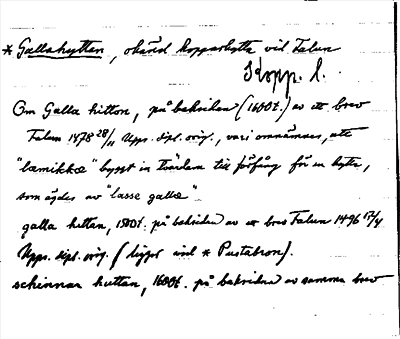 * Gallahyttan, okänd kopparhytta vid Falun
Kopp. l.
Om Galla hitton, på baksidan (1600t.) av ett brev
Falun 1478 28/11 Upps. dipl. orig., vari omnämnes, att
"læmikkæ" byggt in tvärdam till förfång för en hytta,
som ägdes av "lasse gallæ"
galla hittan, 1500t. på baksidan av ett brev Falun 1496 17/4
Upps. dipl. orig. (ligger vid * Pustabron).
schinnar huttan, 1600t. på baksidan av samma brev